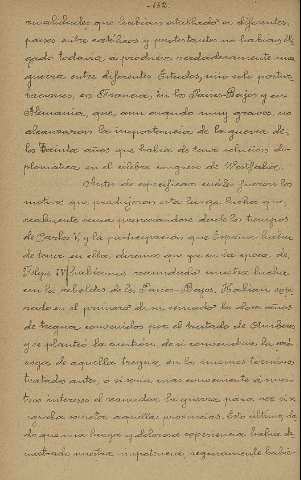 - 132
rivalidades que habían estallado en diferentes
países entre católicos y protestantes no habían lle
gado todavía a producir verdaderamente una
guerra entre diferentes Estados, sino solo pertur
baciones, en Francia, en los Países-Bajos y en
Alemania, que, aun cuando muy graves, no
alcanzaron la importancia de la guerra de
los Treinta años que había de tener solución di-
plomática en el célebre congreso de Westfalia.
Antes de especificar cuáles fueron los
motivos que produjeron esta larga lucha que,
realmente venía preparándose desde los tiempos
de Carlos V, y la participación que España hubo
de tomar en ella, diremos que ya en la época de
Felipe IV habíamos reanudado nuestra lucha
con los rebeldes de los Países-Bajos. Habían expi
rado en el primero de su reinado los doce años
de tregua convenidos por el tratado de Amberes
y se planteó la cuestión de si convendría la pró
rroga de aquella tregua, en los mismos términos
tratados antes, o si sería más conveniente a nues
tros intereses el reanudar la guerra para ver si
aquellas provincias. Esto último, da
do que una larga y dolorosa experiencia había de
mostrado nuestra impotencia, seguramente habría